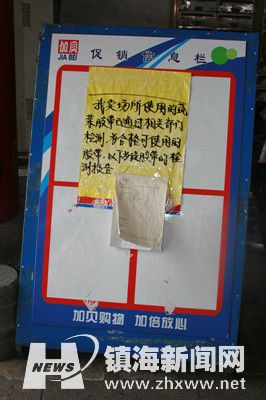 加贝
JIA BEI
促销信息栏
我卖场所使用的蔬
菜胶带已通过相关部门
检测,为合格可使用的
胶带.以下为该胶带的检
测报告
加贝购物 加倍放心
NEWS
镇海新闻网
www.zhxww.net